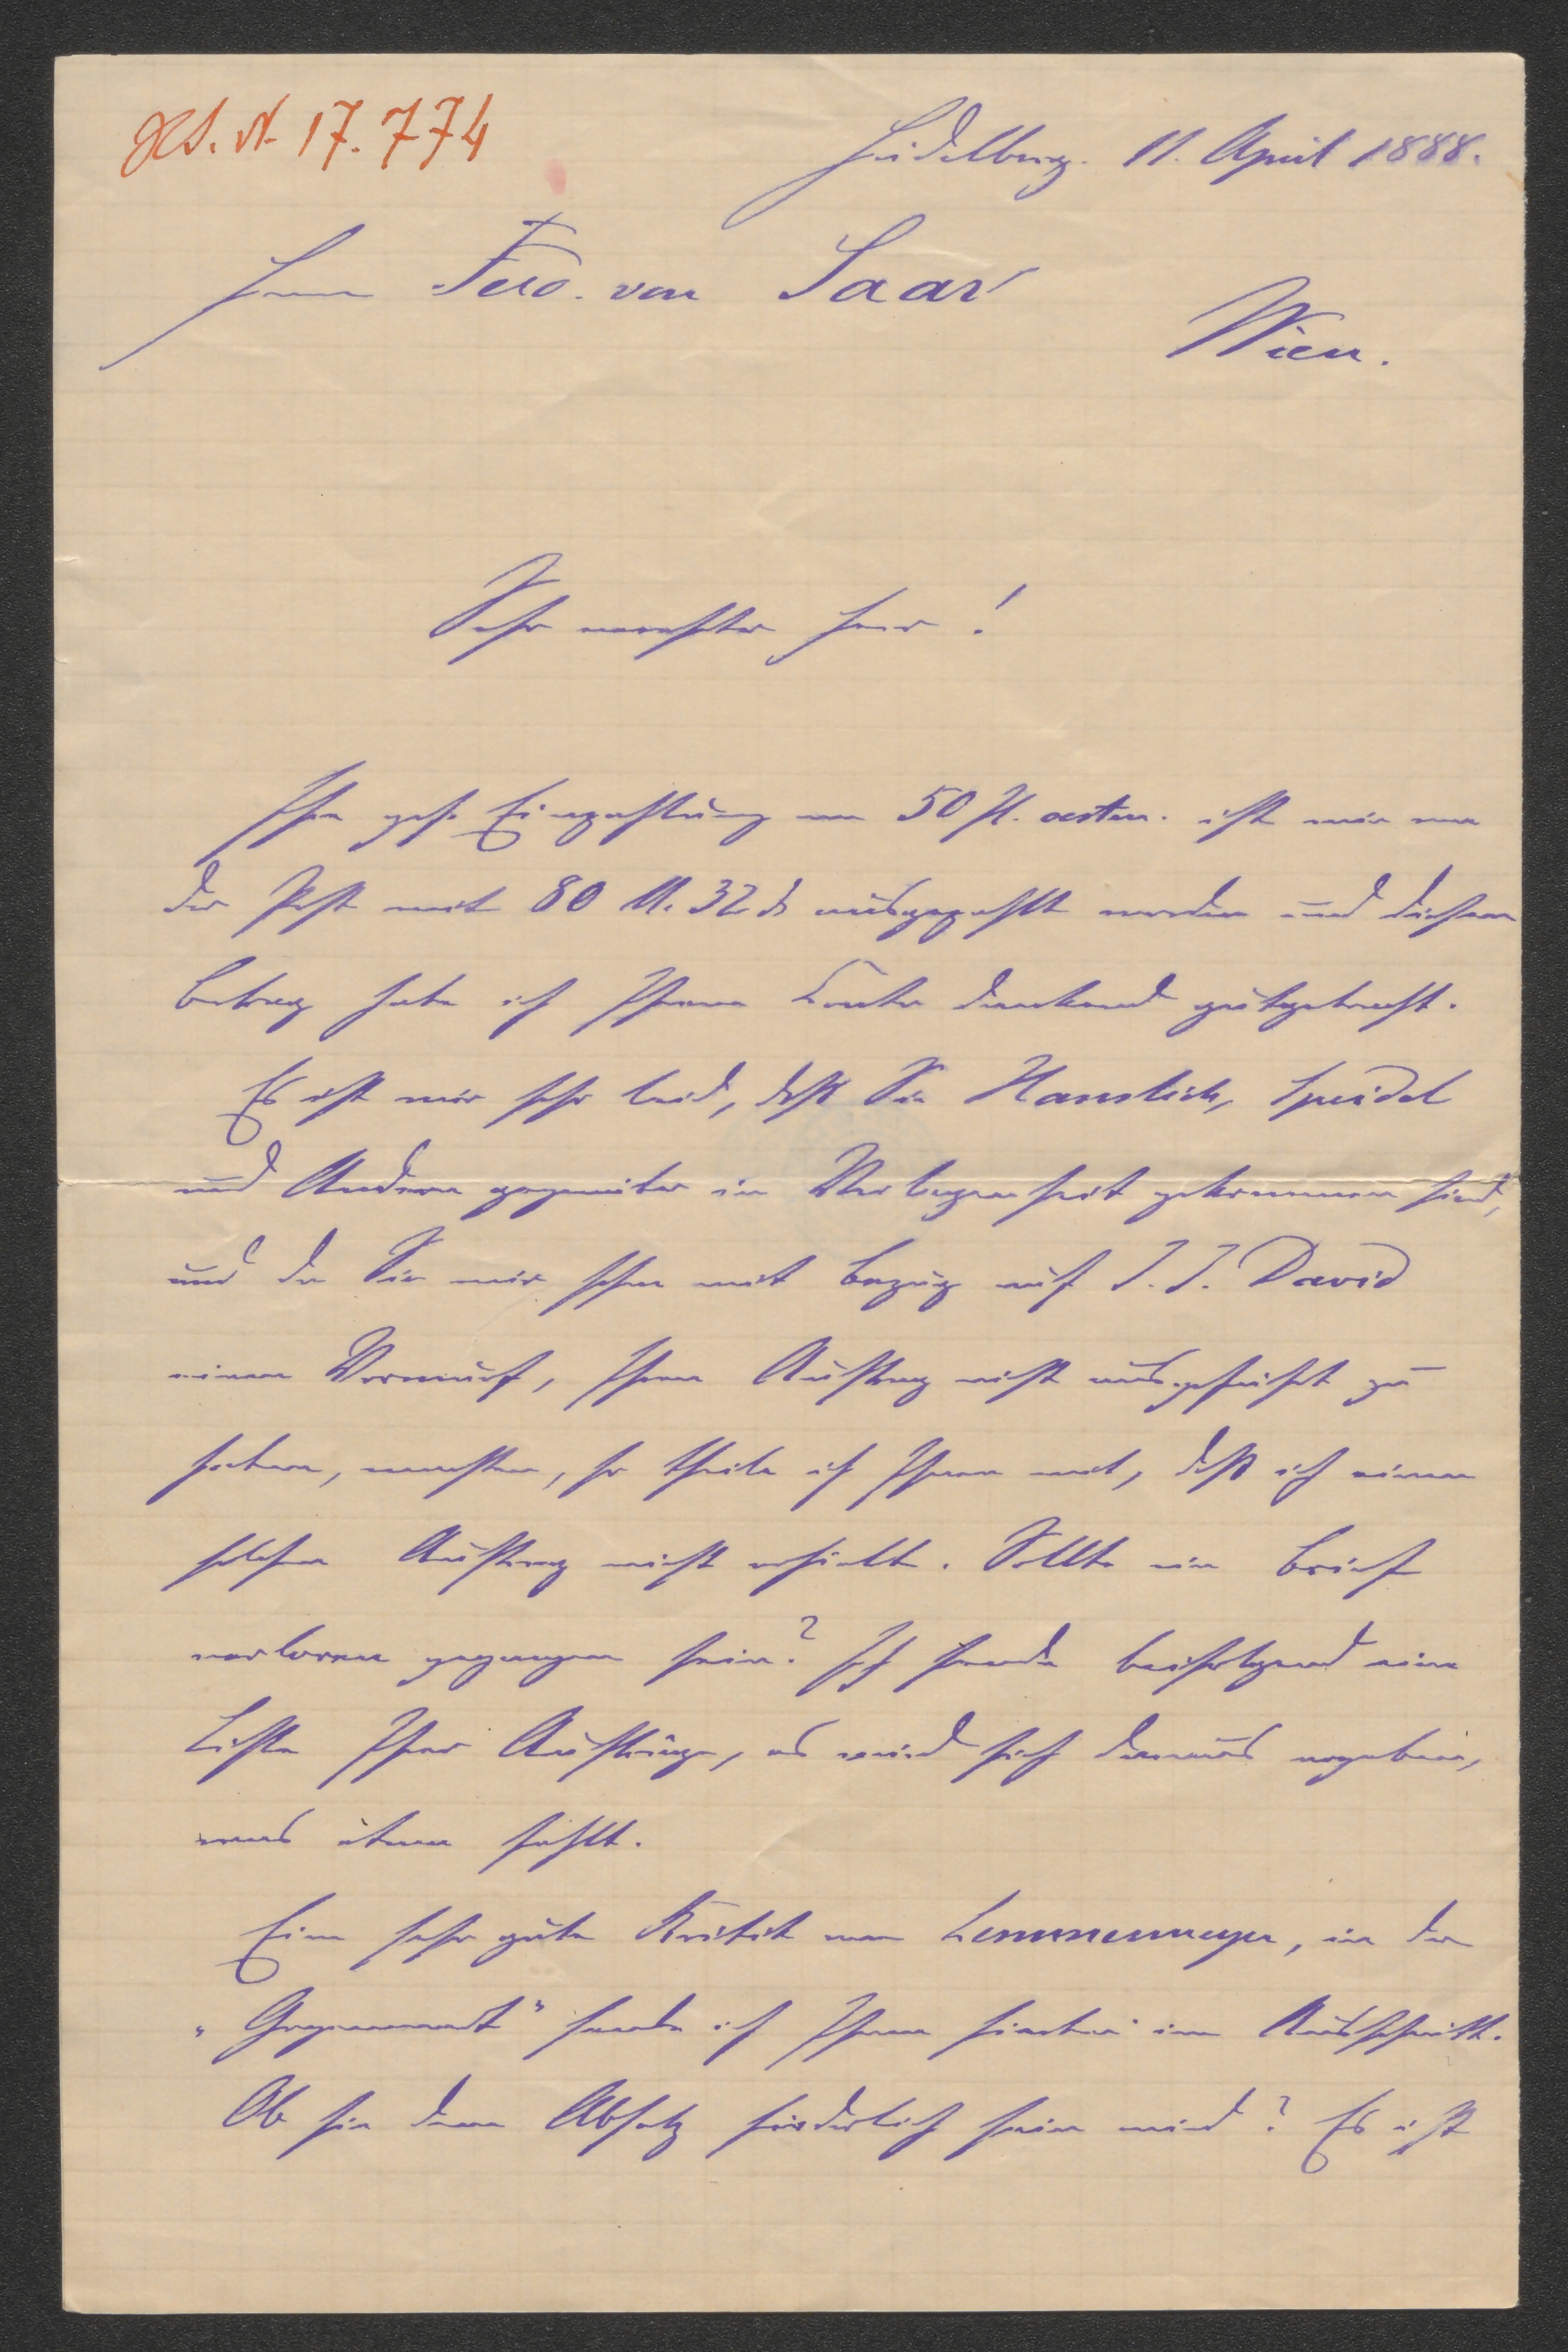 H.I.N. 17.774
Heidelberg. 11. April 1888.
Herrn Ferd. von Saar
Wien.
Sehr verehrter Herr!
Ihre gefl. Einzahlung von 50 fl. oesterr. ist mir von
der Post mit 80 M. 32 ₰ ausgezahlt worden und diesen
Betrag habe ich Ihrem Conto dankend gutgebracht.
Es ist mir sehr leid, daß Sie Hanslick, Speidel
und Andern gegenüber in Verlegenheit gekommen sind,
und da Sie mir schon mit Bezug auf J. J. David
einen Vorwurf, Ihren Auftrag nicht ausgeführt zu
haben, machten, so theile ich Ihnen mit, daß ich einen
solchen Auftrag nicht erhielt. Sollte ein Brief
verloren gegangen sein? Ich sende beifolgend eine
Liste Ihrer Aufträge, es wird sich daraus ergeben,
was etwa fehlt.
Eine sehr gute Kritik von Lemmermeyer, in der
„Gegenwart" sende ich Ihnen hierbei im Ausschnitt.
Ob sie dem Absatz förderlich sein wird? Es ist